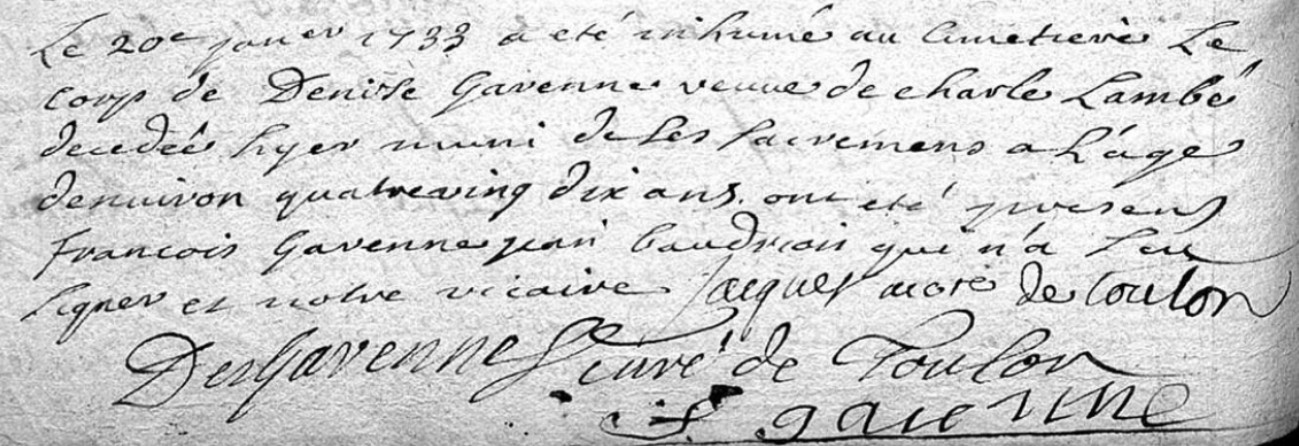 Le 20e janver 1733 a eté inhumé au Cimetiere Le
corp de Denise Gavenne veuve de charle Lambé
decedée hyer muni de ses sacremens a L'age
denuiron quatreving dix ans. ont eté presens
francois Gavenne jean baudrion qui n'a sçu
signer et notre vicaire Jacques de toulon
DesGavennes curé de Toulon
f. gavenne